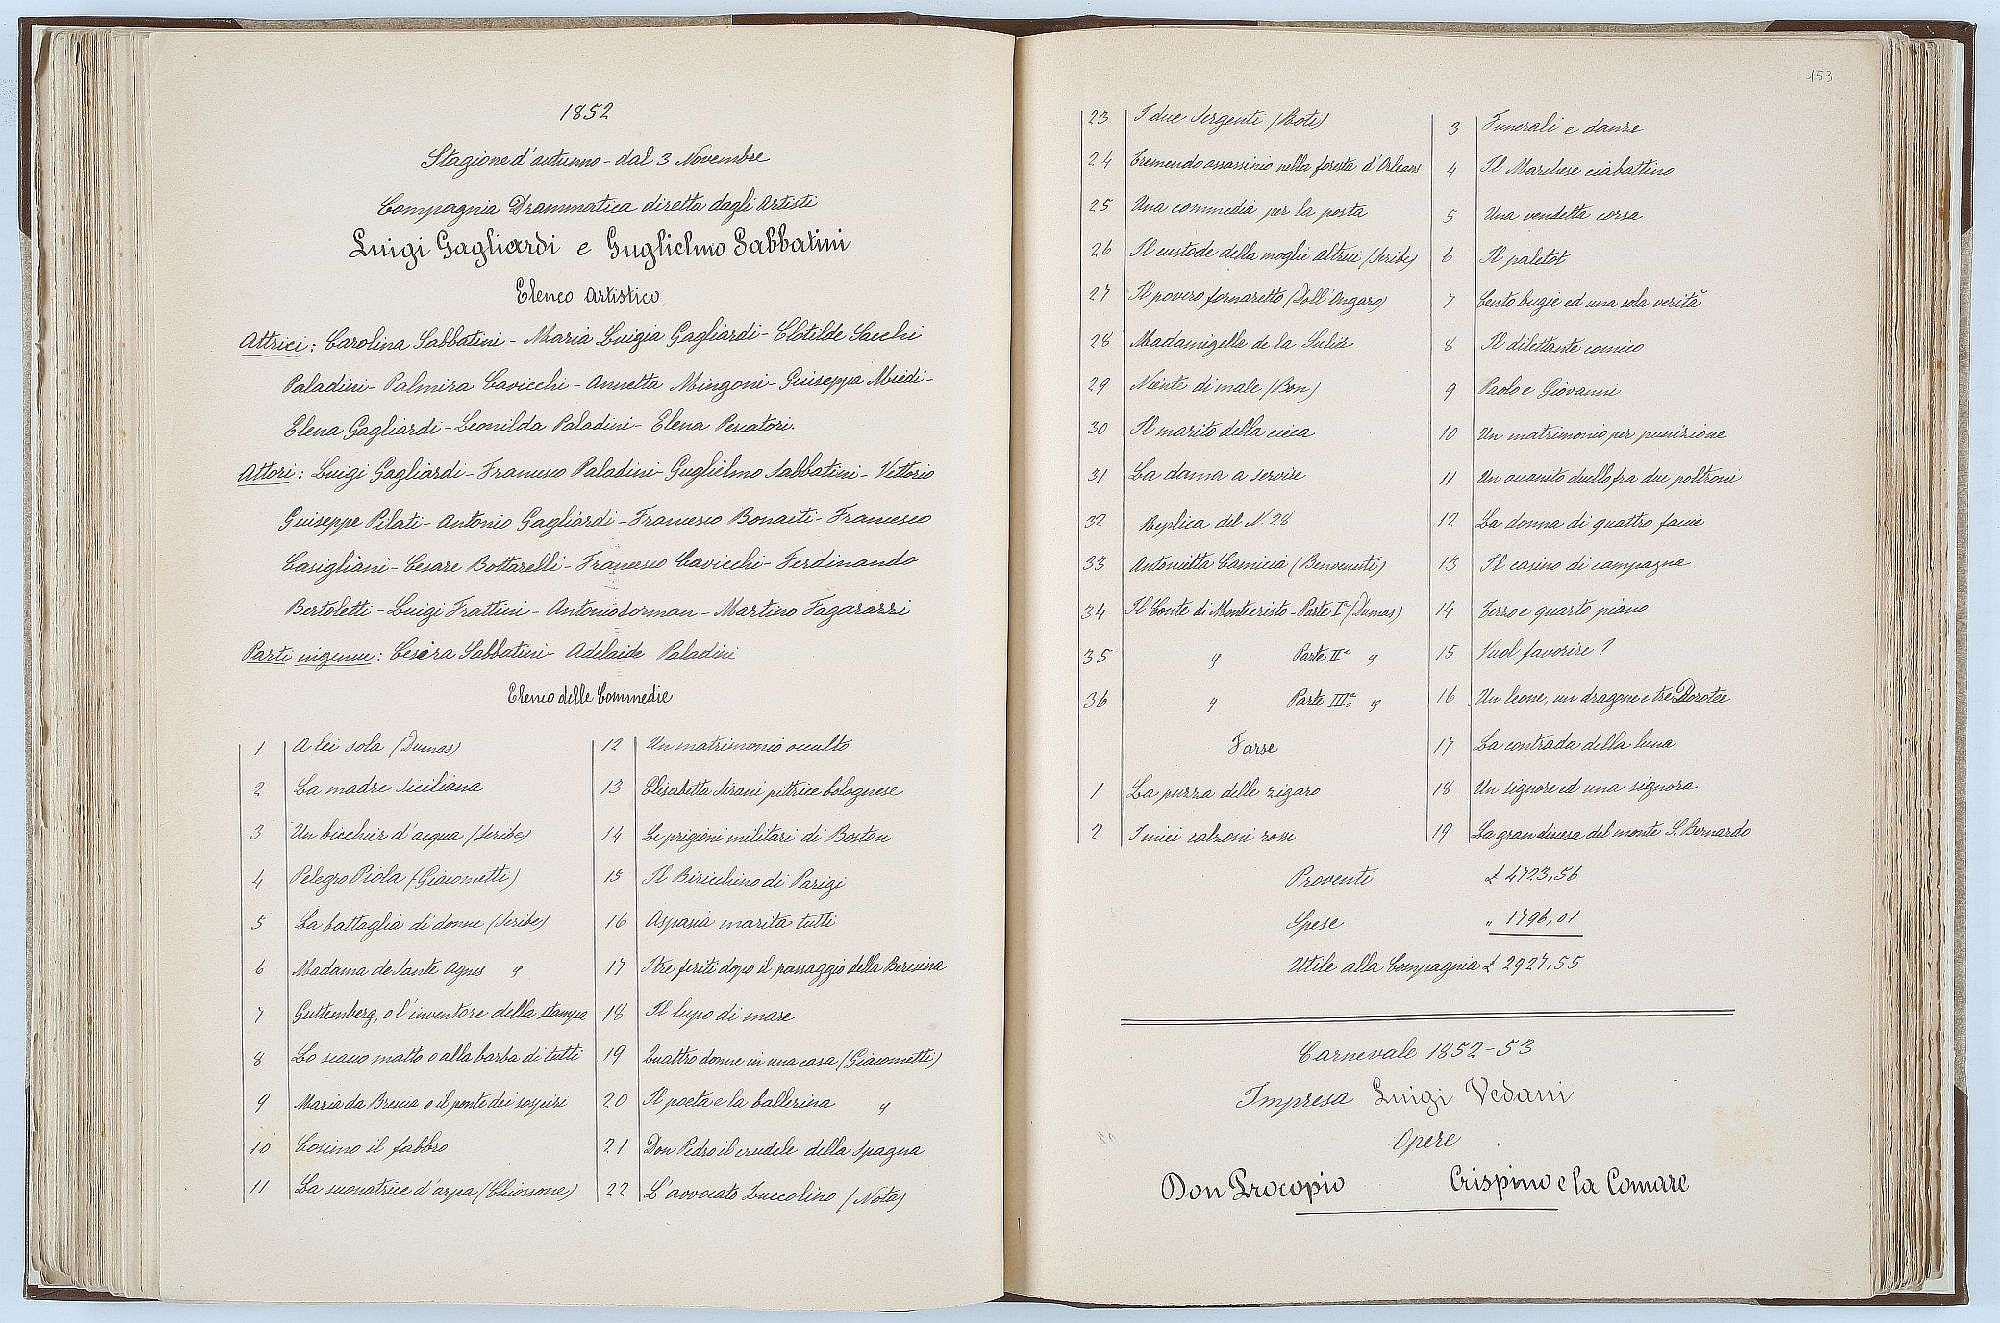 1852
Stagione d'autunno - dal 3 Novembre
Compagnia Drammatica diretta dagli Artisti
Luigi Gagliardi e Guglielmo Sabbatini
Elenco Artistico
Attrici: Carolina Sabbatini - Maria Luigia Gagliardi - Clotilde Sacchi
Paladini - Palmira Cavicchi - Annetta Mingoni - Guiseppa Miedi -
Elena Gagliardi - Leonilda Paladini - Elena Pescatori.
Attori: Luigi Gagliardi - Francesco Paladini - Guglielmo Sabbatini - Vittorio
Guiseppe Pilati - Antonio Gagliardi - Francesco Bonaiti - Francesco
Casigliani - Cesare Bottarelli - Francesco Cavicchi - Ferdinando
Bertoletti - Luigi Frattini - Antonio Sorman - Martino Fagarazzi
Parti ingenue: Cesira Sabbatini - Adelaide Paladini
Elenco delle Commedie
1 A lei sola (Dumas)
2 La madre siciliana
3 Un bicchier d'acqua (Scribe)
4 Pelegro Piola (Giacometti)
5 La battaglia di donne (Scribe)
6 Madama de Sante Agnes "
7 Guttemberg, o l'inventore della stampa
8 Lo scacco matto o alla barba di tutti
9 Maria da Brescia o il ponte dei sospiri
10 Cosimo il fabbro
11 La suonatrice d'arpa (Chiossone)
12 Un matrimonio occulto
13 Elisabetta Sirani pittrice bolognese
14 Le prigioni militari di Boston
15 Il Biricchino di Parigi
16 Aspasia marita tutti
17 I tre feriti dopo il passaggio della Beresina
18 Il lupo di mare
19 Quattro donne in una casa (Giacometti)
20 Il poeta e la ballerina "
21 Don Pedro il crudele della Spagna
22 L'avvocato Zuccolino (Nota)
153
23 I due Sergenti (Roti)
24 Tremendo assassinio nella foresta d'Orleans
25 Una commedia per la posta
26 Il custode della moglie altrui (Scribe)
27 Il povero fornaretto (Dall'Ongaro)
28 Madamigella de la Sulia
29 Niente di male (Bon)
30 Il marito della cieca
31 La dama a servire
32 Replica del N. 28
33 Antonietta Camicia (Benvenuti)
34 Il Conte di Montecristo - Parte Iª (Dumas)
35 " Parte IIª "
36 " Parte IIIª "
Farse
1 La puzza delle zigaro
2 I miei calzoni rossi
3 Funerali e danze
4 Il Marchese ciabattino
5 Una vendetta corsa
6 Il paletot
7 Cento bugie ed una sola verità
8 Il dilettante comico
9 Paolo e Giovanni
10 Un matrimonio per punizione
11 Un inaudito duello fra due poltroni
12 La donna di quattro facie
13 Il casino di campagna
14 Terzo e quarto piano
15 Vuol favorire?
16 Un leone, un dragone e tre Dorotee
17 La contrada della luna
18 Un signore ed una signora
19 La gran discesa del monte S. Bernardo
Proventi £ 4723,56
Spese " 1796,01
Utile alla Compagnia £ 2927,55
Carnevale 1852-53
Impresa Luigi Vedani
Opere
Don Procopio Crispino e la Comare